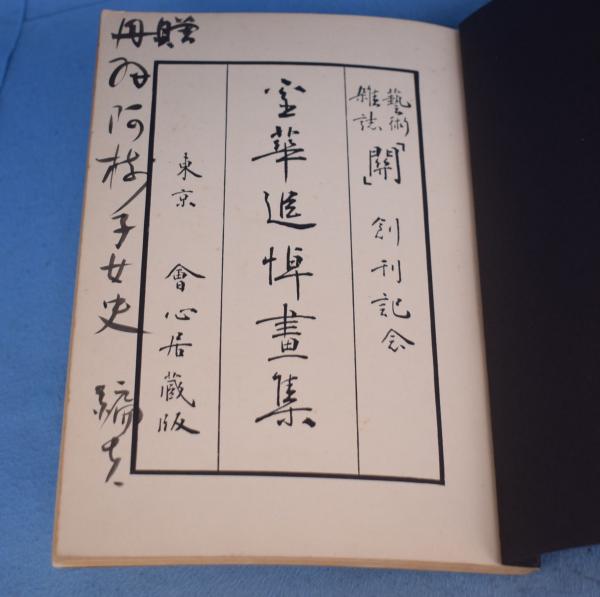 藝術
雑誌
「關」創刊記念
金華追悼畫集
東京 會心居藏版
贈
丹羽阿樹子女史
編者